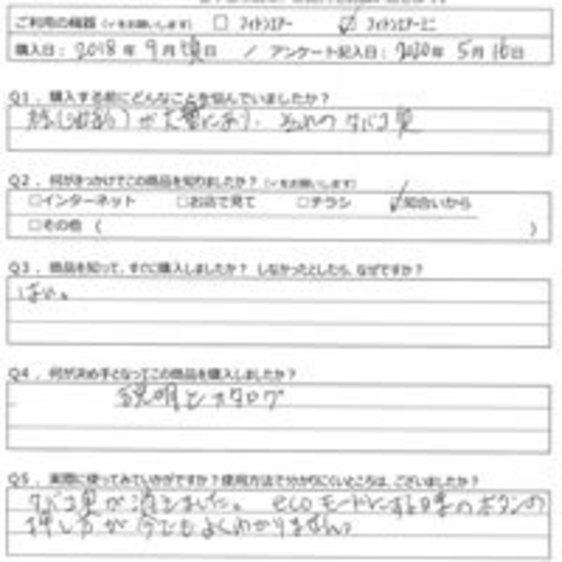 ご利用の機器(✓をお願いします) □ フィトンエアー ☑ フィトンエアーミニ
購入日: 2018年 9月頃日 / アンケート記入日: 2020年 5月16日
Q1. 購入する前にどんなことを悩んでいましたか?
が大量にあり、それのタバコ臭
Q2. 何がきっかけでこの商品を知りましたか? (✓をお願いします)
□インターネット □お店で見て □チラシ ☑知合いから
□その他 ( )
Q3. 商品を知って、すぐに購入しましたか? しなかったとしたら、なぜですか?
はい。
Q4. 何が決め手となってこの商品を購入しましたか?
説明とカタログ
Q5. 実際に使ってみていかがですか?使用方法で分かりにくいところは、ございましたか?
タバコ臭が消えました。 ecoモードにする時のボタンの
押し方が今でもよくわかりません。